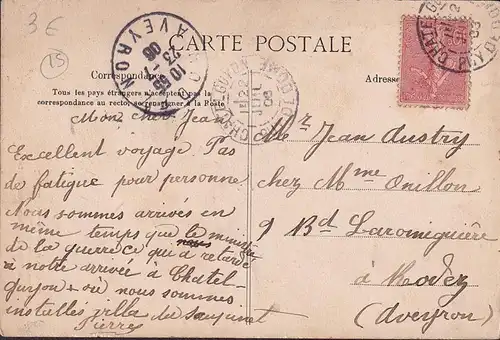 3€
15
CARTE POSTALE
Correspondance
Adresse
Tous les pays étrangers n'acceptent pas la
correspondance au recto, se renseigner à la Poste
AVEYRON
CHATEL-GUYON
PUY-DE-DOME
Mon cher Jean
Excellent voyage. Pas
de fatigue pour personne
Nous sommes arrivés en
même temps que le ministre
de la guerre ce qui a retardé
à notre arrivée à Chatel-
guyon + où nous sommes
installés villa du
Pierre
Mr Jean Austry
chez Mme Onillon
9 Bd Laromiguière
à Rodez
(Aveyron)